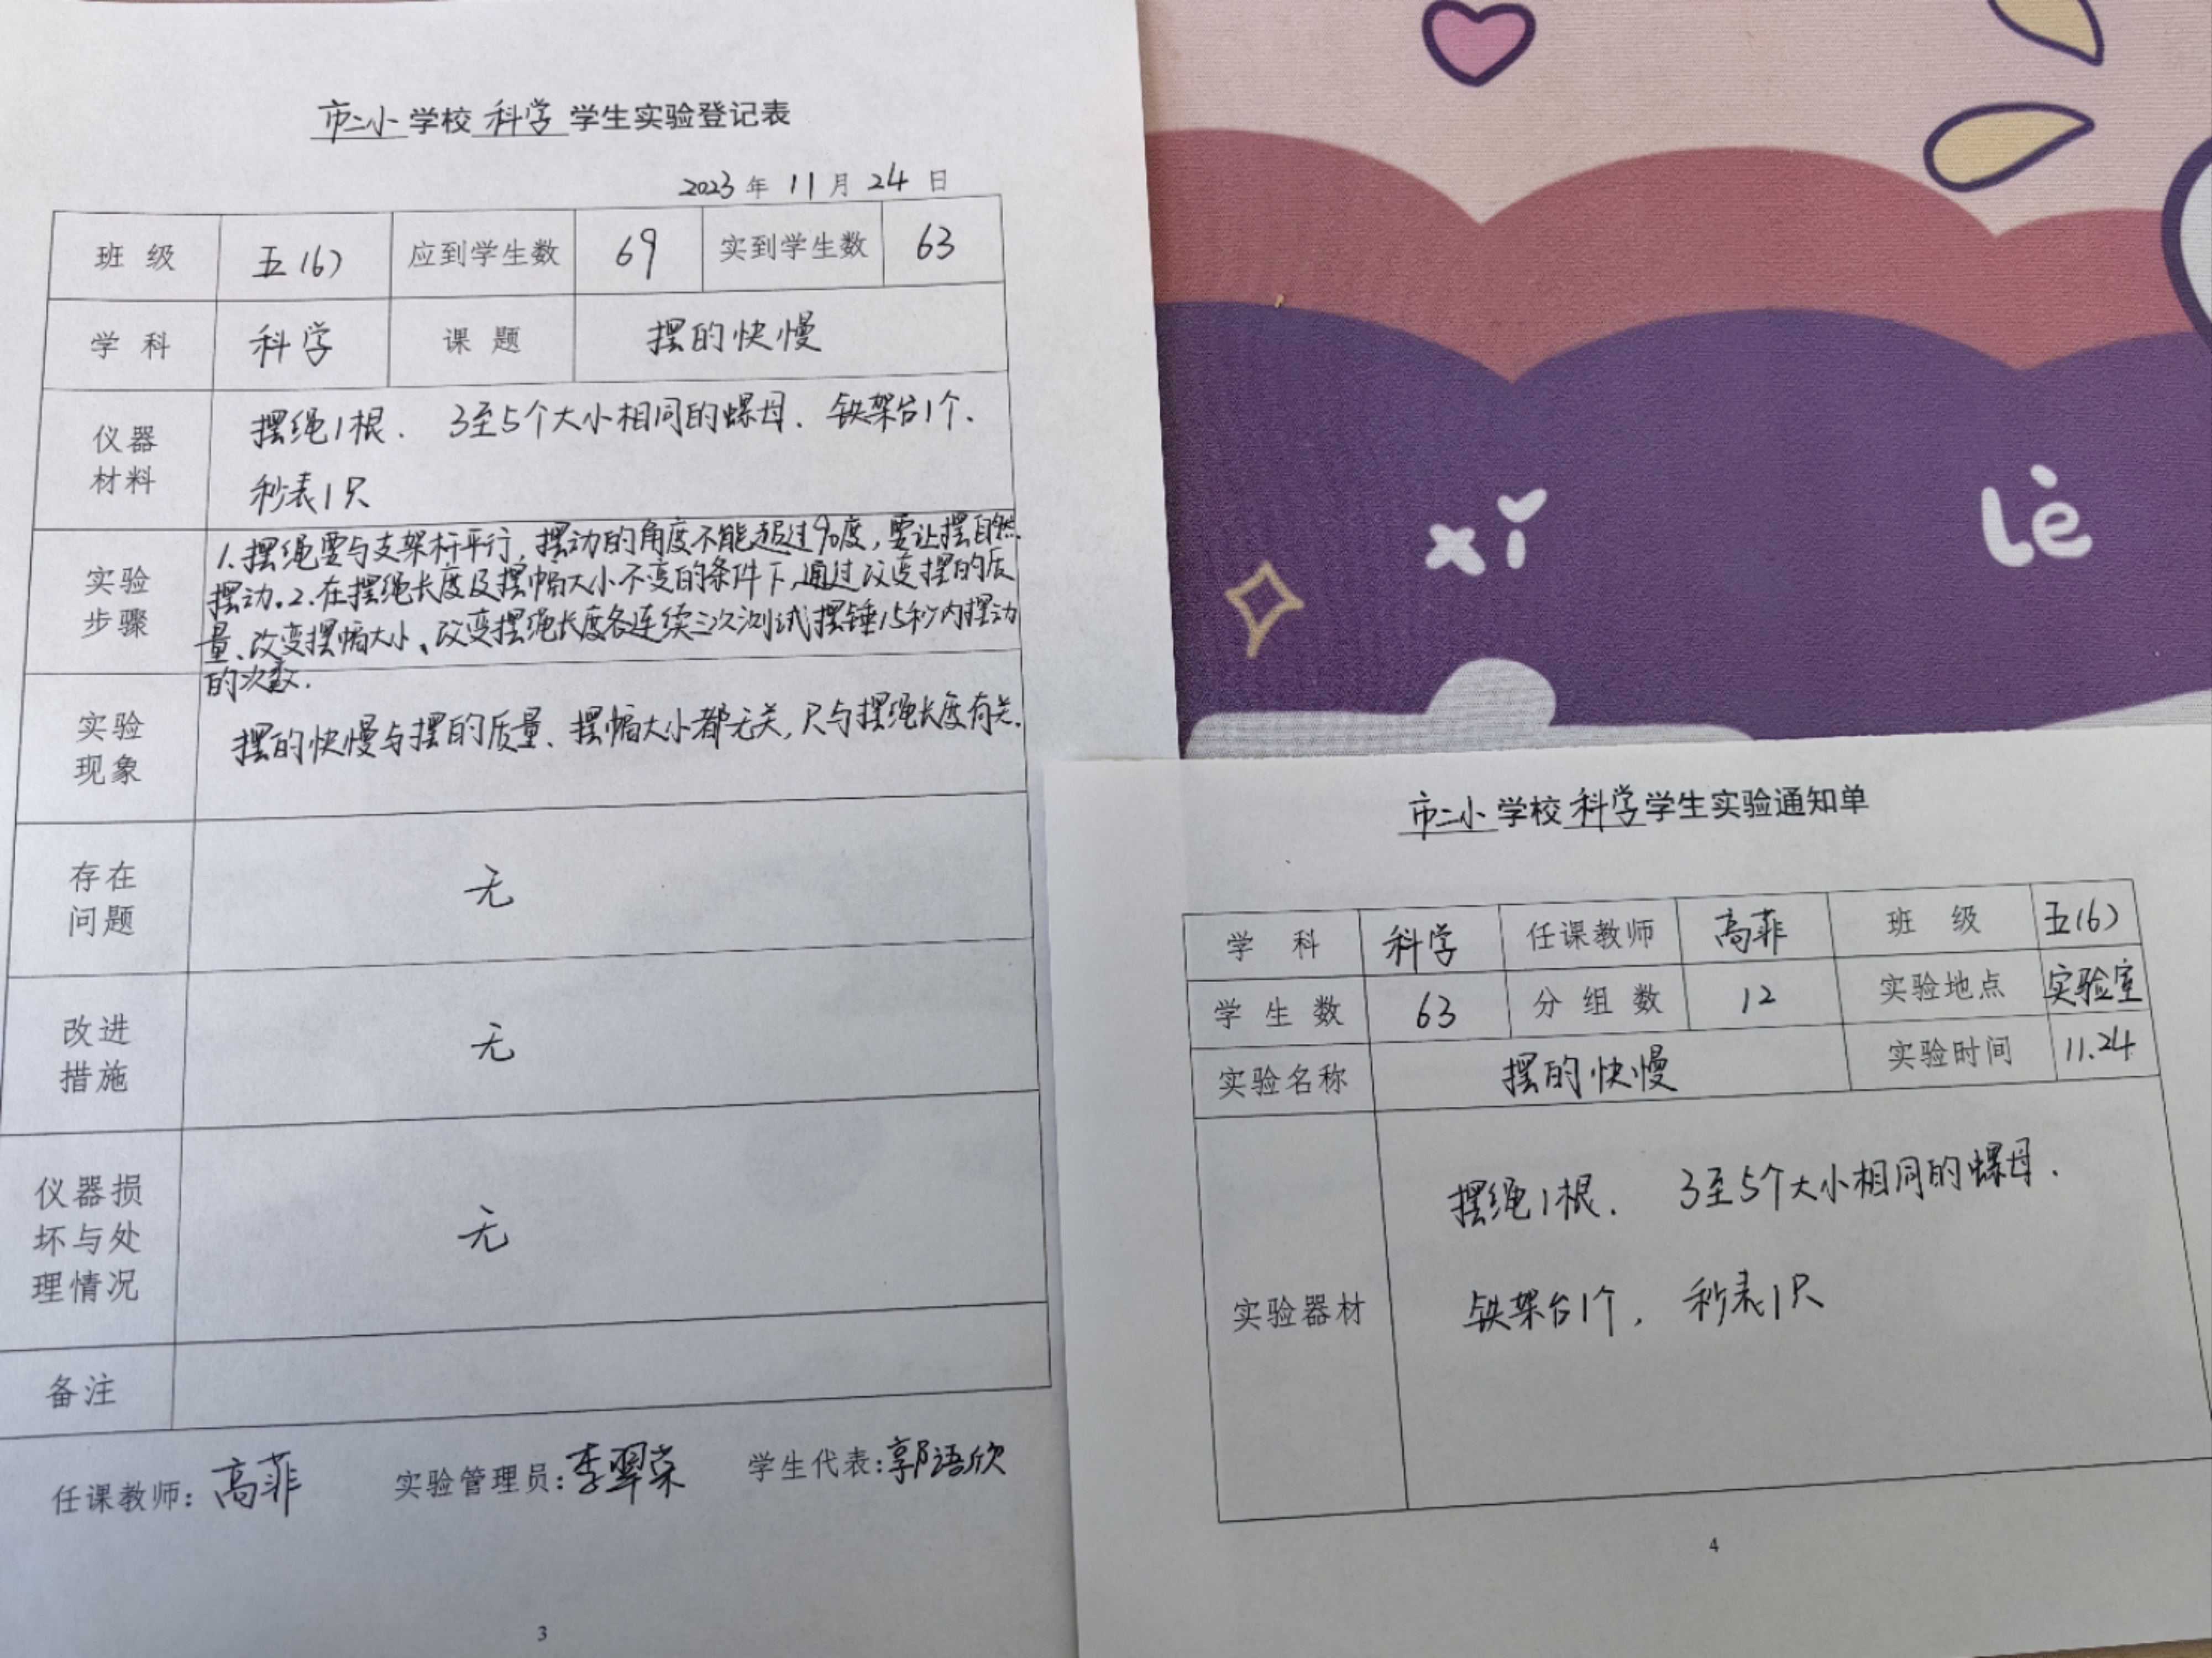 市二小学校科学学生实验登记表
2023年11月24日
班 级 五(6) 应到学生数 69 实到学生数 63
学 科 科学 课 题 摆的快慢
仪器
材料
摆绳1根. 3至5个大小相同的螺母. 铁架台1个.
秒表1只
实验
步骤
1.摆绳要与支架杆平行,摆动的角度不能超过90度,要让摆自然
摆动。2.在摆绳长度及摆幅大小不变的条件下,通过改变摆的质
量、改变摆幅大小、改变摆绳长度各连续三次测试摆锤15秒内摆动
的次数.
实验
现象
摆的快慢与摆的质量、摆幅大小都无关,只与摆绳长度有关.
存在
问题
无
改进
措施
无
仪器损
坏与处
理情况
无
备注
任课教师:高菲 实验管理员:李翠荣 学生代表:郭语欣
3
xǐ lè
市二小学校科学学生实验通知单
学 科 科学 任课教师 高菲 班 级 五(6)
学 生 数 63 分 组 数 12 实验地点 实验室
实验名称 摆的快慢 实验时间 11.24
实验器材
摆绳1根. 3至5个大小相同的螺母.
铁架台1个, 秒表1只
4